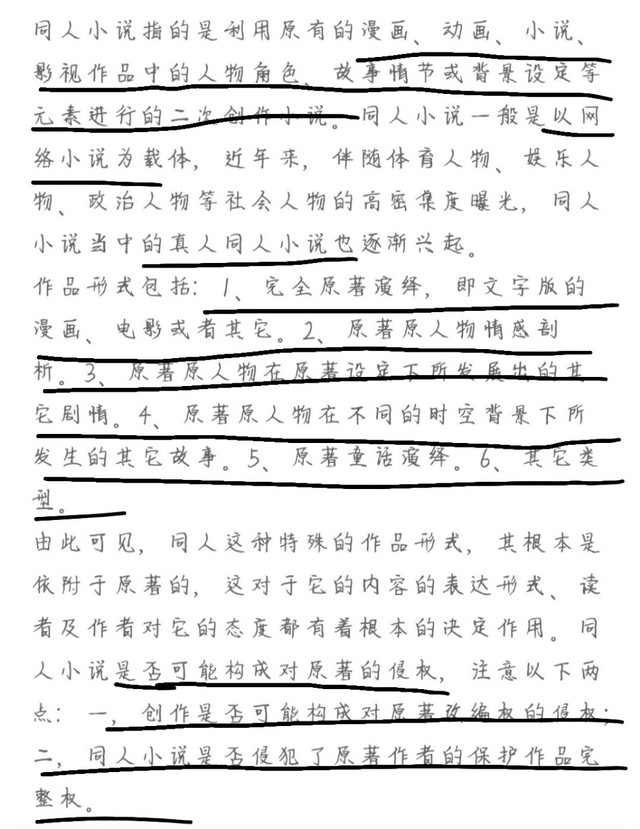 同人小说指的是利用原有的漫画、动画、小说、
影视作品中的人物角色、故事情节或背景设定等
元素进行的二次创作小说。同人小说一般是以网
络小说为载体，近年来，伴随体育人物、娱乐人
物、政治人物等社会人物的高密集度曝光，同人
小说当中的真人同人小说也逐渐兴起。
作品形式包括：1、完全原著演绎，即文字版的
漫画、电影或者其它。2、原著原人物情感剖
析。3、原著原人物在原著设定下所发展出的其
它剧情。4、原著原人物在不同的时空背景下所
发生的其它故事。5、原著童话演绎。6、其它类
型。
由此可见，同人这种特殊的作品形式，其根本是
依附于原著的，这对于它的内容的表达形式、读
者及作者对它的态度都有着根本的决定作用。同
人小说是否可能构成对原著的侵权，注意以下两
点：一，创作是否可能构成对原著改编权的侵权；
二，同人小说是否侵犯了原著作者的保护作品完
整权。